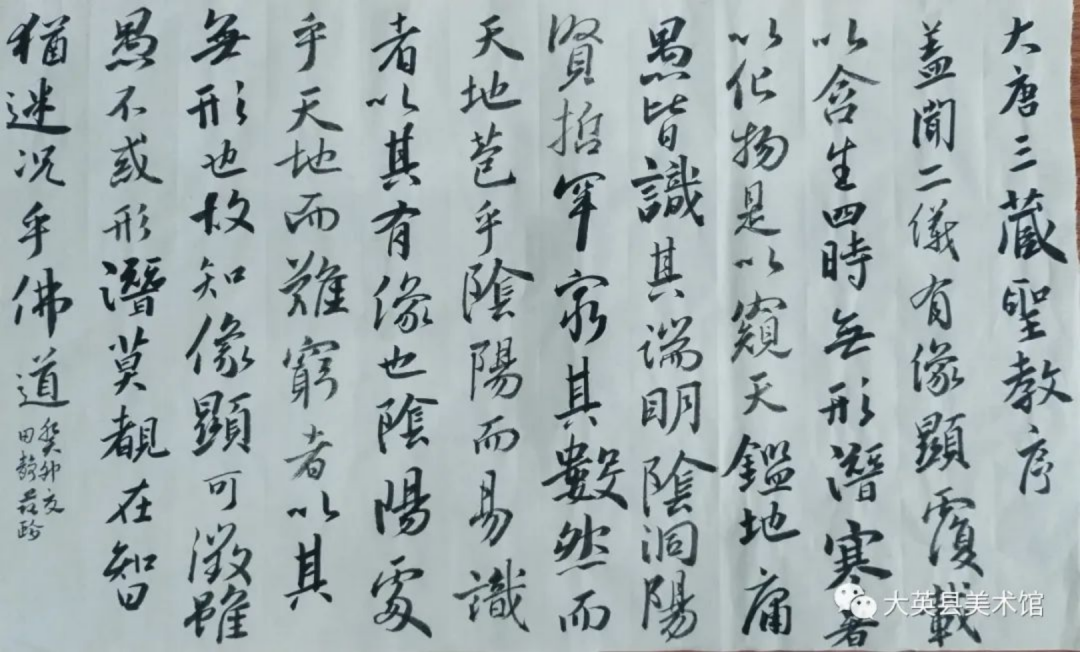 大唐三藏聖教序
盖聞二儀有像顯覆載
以含生四時無形潛寒暑
以化物是以窺天鑑地庸
愚皆識其端明陰洞陽
賢哲罕窮其數然而
天地苞乎陰陽而易識
者以其有像也陰陽處
乎天地而難窮者以其
無形也故知像顯可徵雖
愚不惑形潛莫覩在智
猶迷况乎佛道
癸卯夏
田静
大英县美术馆